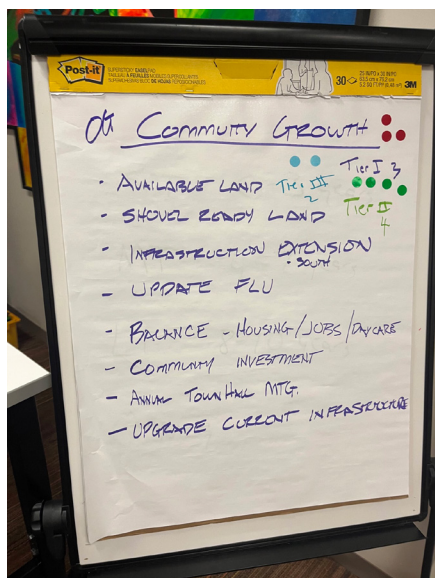 Post-it
SUPERSTICKY EASEL PAD
30
3M
COMMUITY GROWTH
Tier I 3
• AVAILABLE LAND Tier III 2
• SHOVEL READY LAND Tier II 4
• INFRASTRUCTION EXTENSION
• SOUTH
– UPDATE FLU
– BALANCE – HOUSING/JOBS/DAYCARE
– COMMUNITY INVESTMENT
– ANNUAL TOWN HALL MTG.
– UPGRADE CURRENT INFRASTRUCTURE